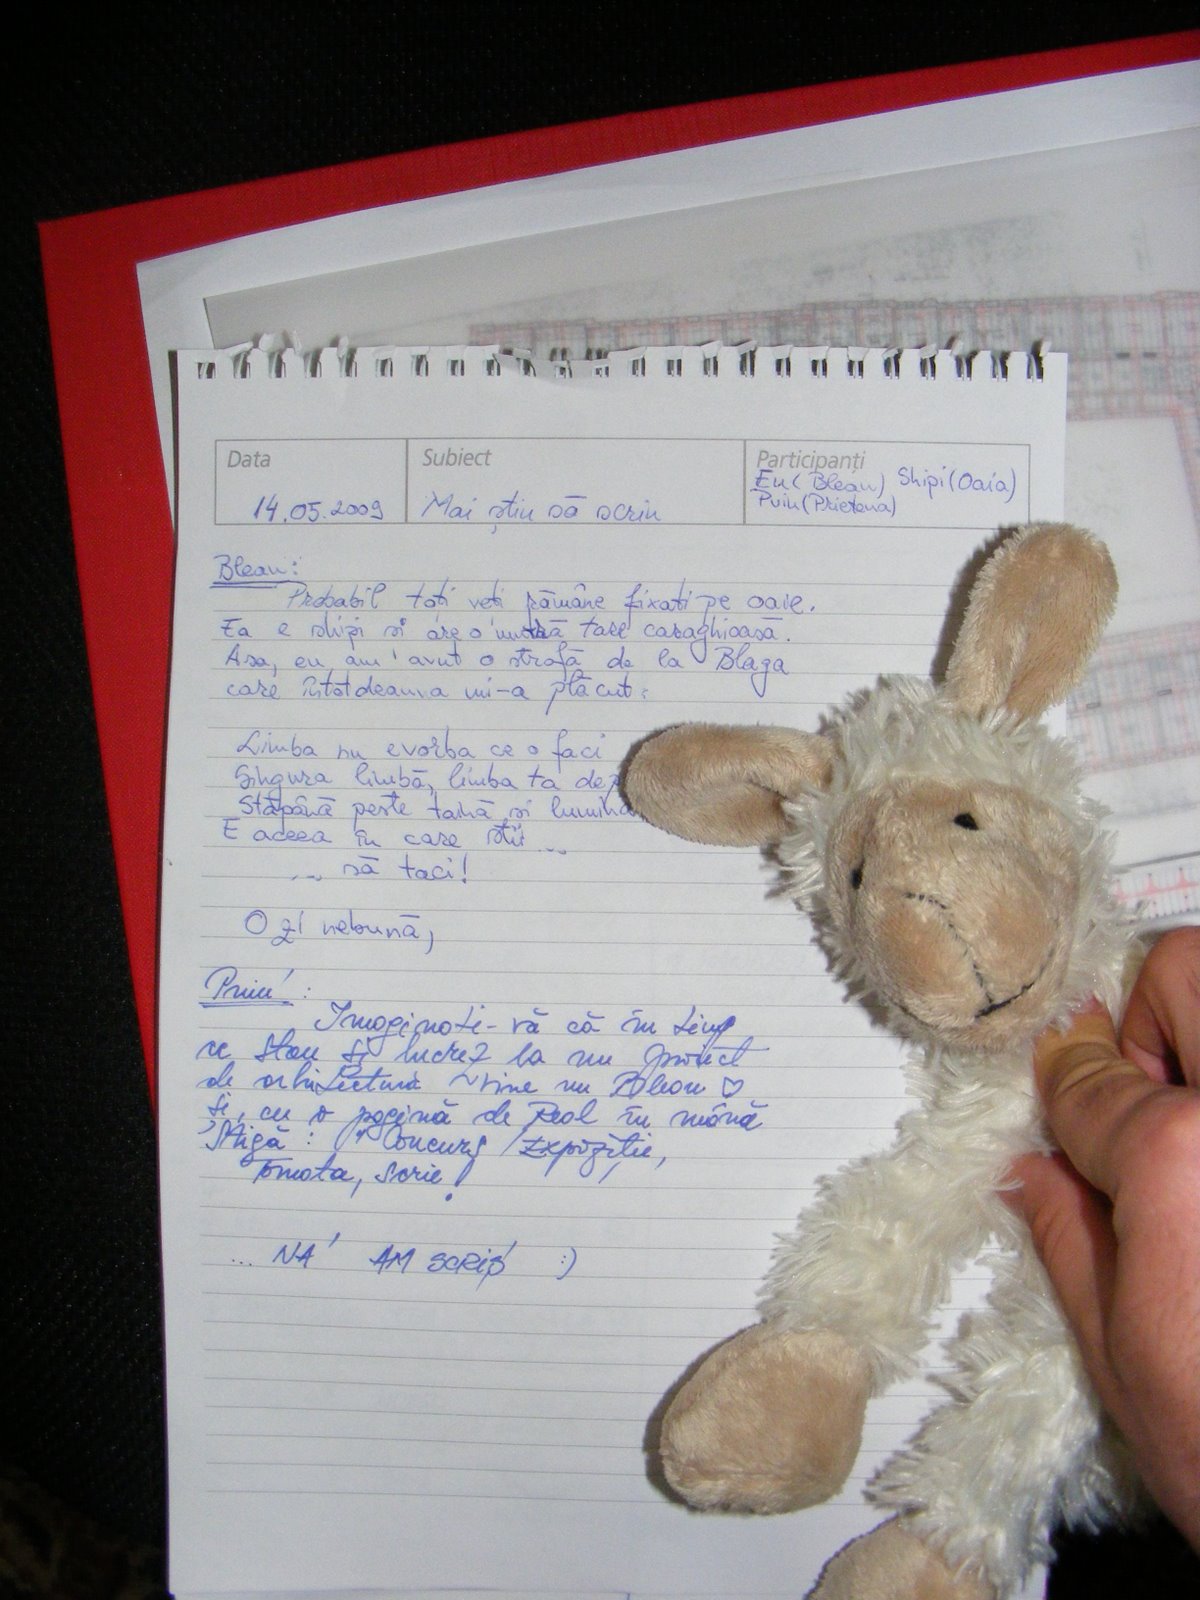 Data
14.05.2009
Subiect
Mai știu să scriu
Participanți
Eu (Bleau) Shipi (Oaia)
Puiu (Prietena)
Bleau:
Probabil toti veti rămâne fixati pe oaie.
Ea e shipi si are o mutră tare caraghioasă.
Asa, eu am avut o strofă de la Blaga
care întotdeauna mi-a plăcut:
Limba nu e vorba ce o faci
Singura limbă, limba ta de
Stăpână peste taină si lumină
E aceea în care stii ...
... să taci!
O zi nebună,
Puiu:
Imaginati-vă că în timp
ce stau și lucrez la un proiect
de arhitectură vine un Bleau ♡
și, cu o pagină de Real în mână
strigă: " Concurs / Expoziție,
Tomata, scrie!
... NA' AM SCRIS :)